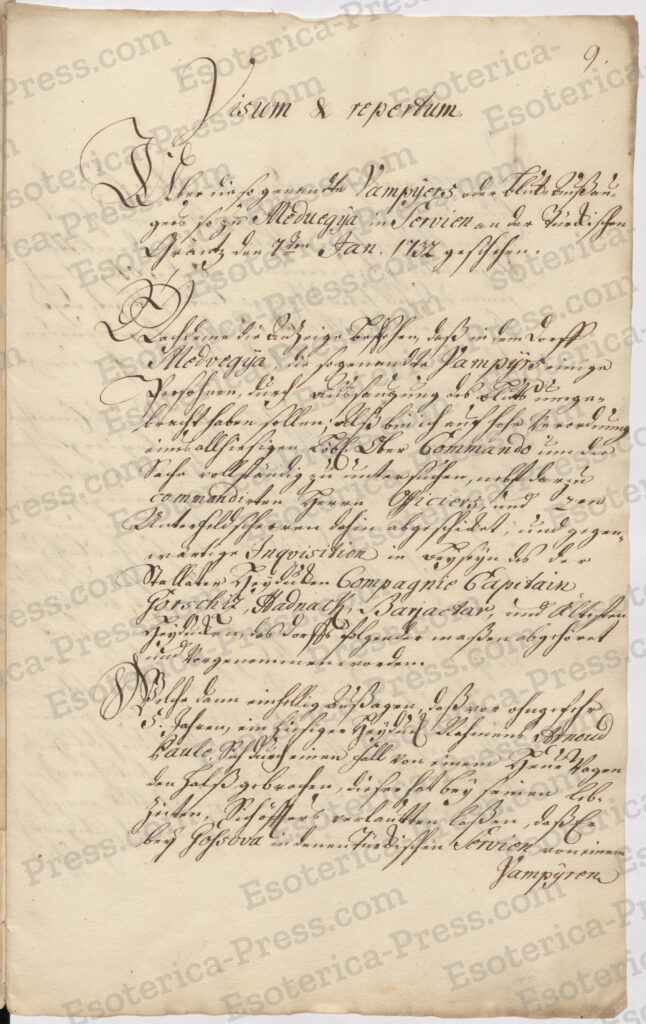 9.
Visum & repertum.
Über die so genandte Vampyers oder Blut Außsau-
gers so zu Meduegya in Servien an der Türckischen
Gräntz den 7ten Jan. 1732 geschehen.
Nachdeme die Anzeige beschehen, daß in dem Dorff
Medvegya, die so genandte Vampyrs einige
Persohnen, durch Aussaugung des Bluts umge-
bracht haben sollen, Alß bin ich auf hohe Verordnung
eines allhiesigen Löbl. Ober Commando um die
Sache vollständig zu untersuchen, nebst darzu
commandirten Herrn Officiers, und 2en
Unterfeldscherren dahin abgeschicket, und gegen-
wärtige Inqvisition in Beyseyn des der
Stallater Heyducken Compagnie Capitain
Gorschiz, Hadnack, Barjactar, und Ältesten
Heyducken, des Dorffs folgender maßen abgehöret
und vorgenommen worden.
Welche dann einhellig Aussagen, daß vor ohngefehr
5. Jahren, ein hiesiger Heyduck Nahmens Arnoud
Paule, sich durch einen Fall von einem Heu Wagen
den Halß gebrochen, dieser hat bey seinen Leb-
zeiten, sich öffters verlautten laßen, daß Er
bey Gossova in denen Türckischen Servien von einem
Vampyren
Esoterica-Press.com